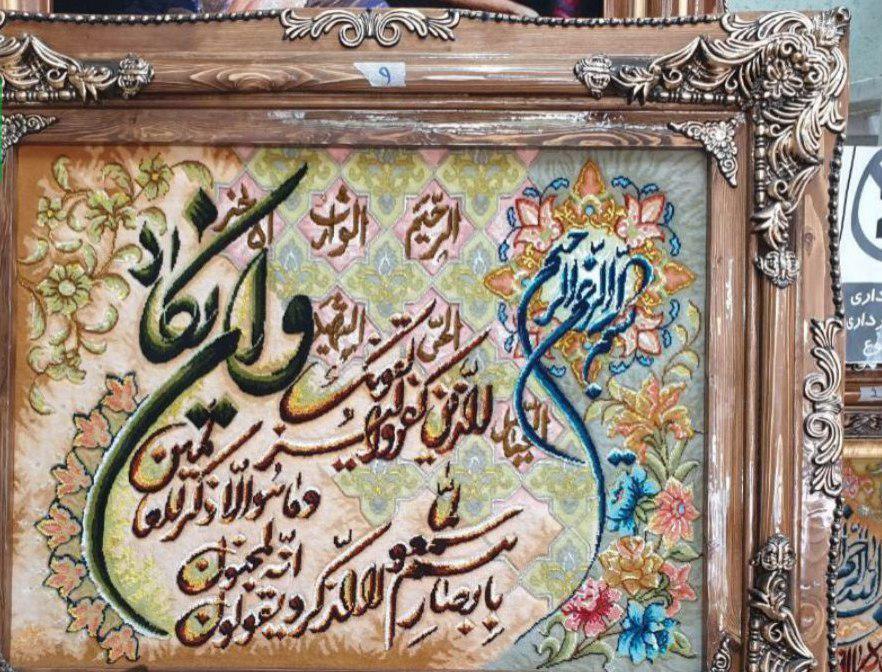 ۹
الرحیم
الوارث
بسم الله الرحمن الرحیم
وان یکاد
الحی
الشهید
الذین کفروا لیزلقونک
بابصارهم لما سمعوا الذکر و یقولون
انه لمجنون
وما هو الا ذکر للعالمین
داری